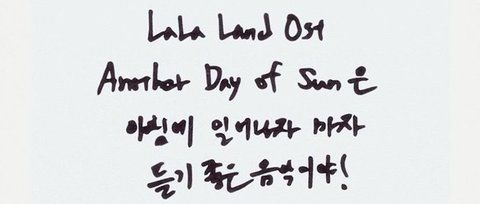 LaLa Land Ost
Another Day of Sun은
아침에 일어나자 마자
듣기 좋은 음악이야!